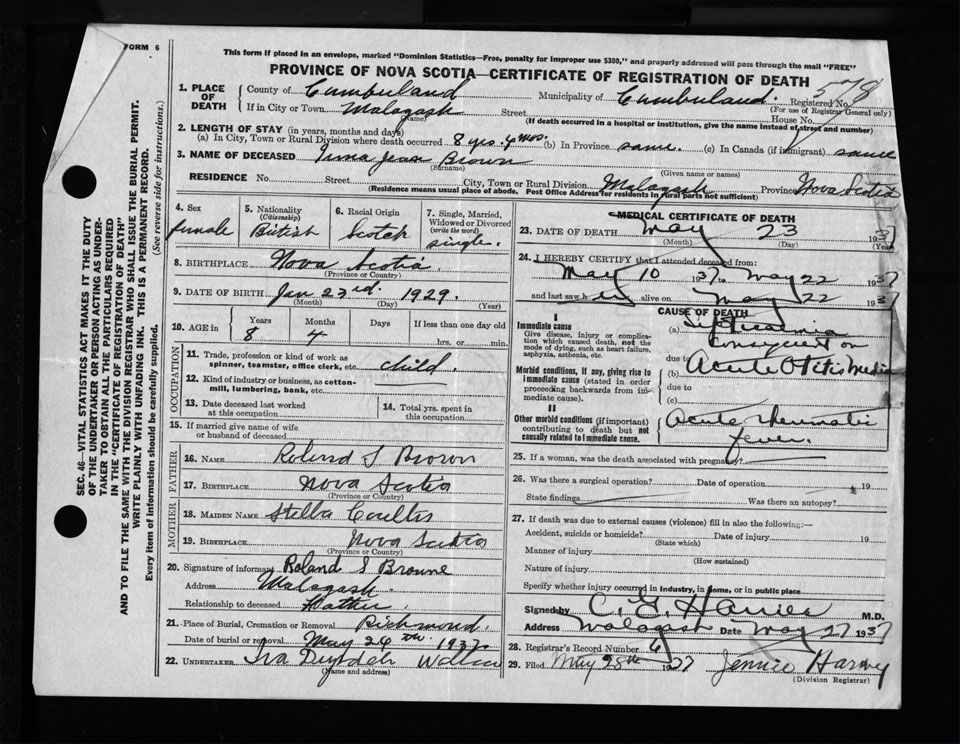 FORM 6
This form if placed in an envelope, marked "Dominion Statistics—Free, penalty for improper use $300," and properly addressed will pass through the mail "FREE"
PROVINCE OF NOVA SCOTIA—CERTIFICATE OF REGISTRATION OF DEATH
1. PLACE OF DEATH
County of Cumberland Municipality of Cumberland. Registered No. 578
(For use of Registrar General only)
If in City or Town Malagash Street House No.
(Name) (If death occurred in a hospital or institution, give the name instead of street and number)
2. LENGTH OF STAY (in years, months and days)
(a) In City, Town or Rural Division where death occurred 8 yrs. 4 mos. (b) In Province same. (c) In Canada (if immigrant) same
3. NAME OF DECEASED Jean Brown
(Surname) (Given name or names)
RESIDENCE No. Street City, Town or Rural Division Malagash Province Nova Scotia
(Residence means usual place of abode. Post Office Address for residents in rural parts not sufficient)
4. Sex
female
5. Nationality
(Citizenship)
British
6. Racial Origin
Scotch
7. Single, Married, Widowed or Divorced
(write the word)
single.
8. BIRTHPLACE Nova Scotia
(Province or Country)
9. DATE OF BIRTH Jan 23rd. 1929.
(Month) (Day) (Year)
10. AGE in Years Months Days If less than one day old
8 4 hrs. or min.
OCCUPATION
11. Trade, profession or kind of work as spinner, teamster, office clerk, etc. child.
12. Kind of industry or business, as cotton-mill, lumbering, bank, etc.
13. Date deceased last worked at this occupation
14. Total yrs. spent in this occupation
15. If married give name of wife or husband of deceased
FATHER
16. NAME Roland S Brown
17. BIRTHPLACE Nova Scotia
(Province or Country)
MOTHER
18. MAIDEN NAME Stella Coulter
19. BIRTHPLACE Nova Scotia
(Province or Country)
20. Signature of informant Roland S Browne
Address Malagash
Relationship to deceased Father.
21. Place of Burial, Cremation or Removal Richmond.
Date of burial or removal May 24th. 1937.
22. UNDERTAKER Wallace
(Name and address)
MEDICAL CERTIFICATE OF DEATH
23. DATE OF DEATH May 23 1937
(Month) (Day) (Year)
24. I HEREBY CERTIFY that I attended deceased from:
May 10 1937 to May 22 1937
and last saw her alive on May 22 1937
CAUSE OF DEATH
I
Immediate cause
Give disease, injury or complication which caused death, not the mode of dying, such as heart failure, asphyxia, asthenia, etc.
(a) Septicaemia
consequent on
due to
Morbid conditions, if any, giving rise to immediate cause (stated in order proceeding backwards from immediate cause).
(b) Acute Otitis Media
due to
(c)
II
Other morbid conditions (if important) contributing to death but not causally related to immediate cause.
Acute rheumatic
fever.
25. If a woman, was the death associated with pregnancy?
26. Was there a surgical operation? Date of operation 19
State findings Was there an autopsy?
27. If death was due to external causes (violence) fill in also the following:—
Accident, suicide or homicide? Date of injury 19
(State which)
Manner of injury
(How sustained)
Nature of injury
Specify whether injury occurred in Industry, in home, or in public place
Signed by M.D.
Address Malagash Date May 27 1937
28. Registrar's Record Number 6
29. Filed May 28th 1937 Jennie Harvey
(Division Registrar)
SEC. 46—VITAL STATISTICS ACT MAKES IT THE DUTY
OF THE UNDERTAKER OR PERSON ACTING AS UNDER-
TAKER TO OBTAIN ALL THE PARTICULARS REQUIRED
IN THE "CERTIFICATE OF REGISTRATION OF DEATH"
AND TO FILE THE SAME WITH THE DIVISION REGISTRAR WHO SHALL ISSUE THE BURIAL PERMIT.
WRITE PLAINLY WITH UNFADING INK. THIS IS A PERMANENT RECORD.
Every item of information should be carefully supplied. (See reverse side for instructions.)